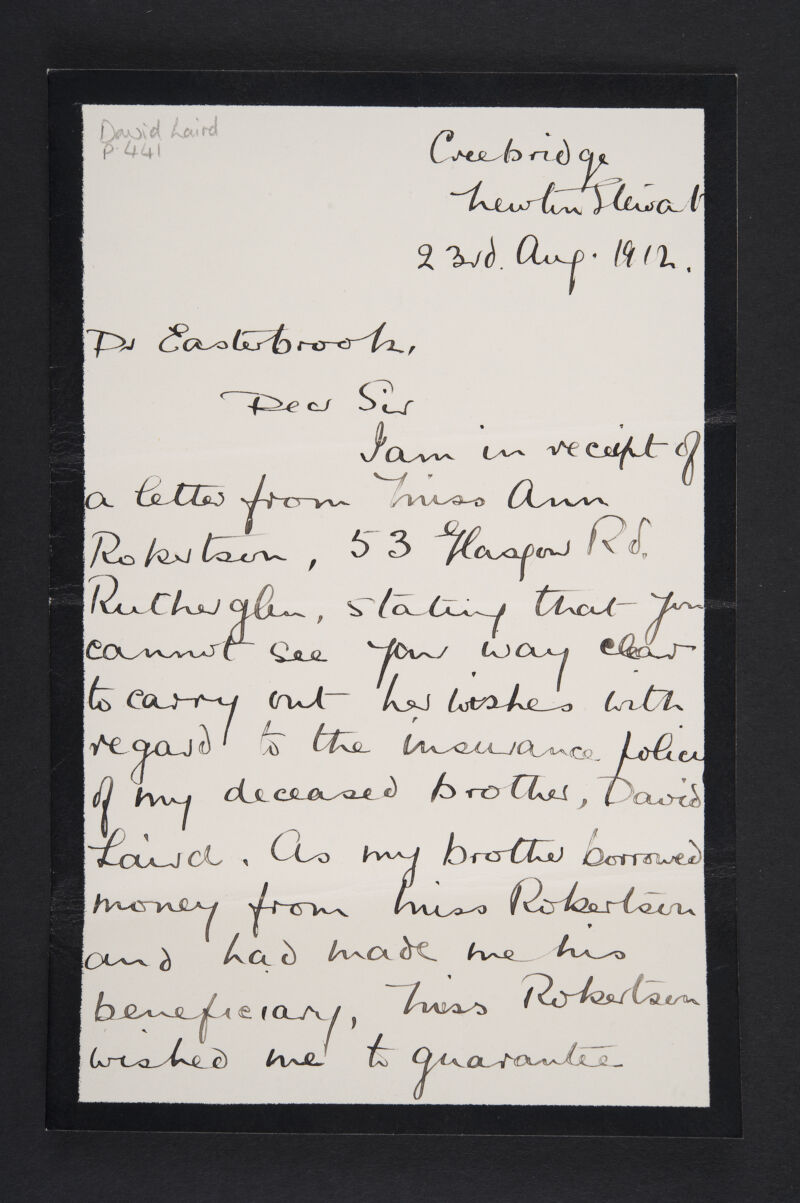 David Laird
P. 441
Creebridge
Newton Stewart
23rd. Aug. 1912.
Dr Easterbrook,
Dear Sir
I am in receipt of
a letter from Miss Ann
Robertson, 53 Glasgow Rd.
Rutherglen, stating that you
cannot see your way clear
to carry out her wishes with
regard to the insurance policy
of my deceased brother, David
Laird. As my brother borrowed
money from Miss Robertson
and had made me his
beneficiary, Miss Robertson
wished me to guarantee